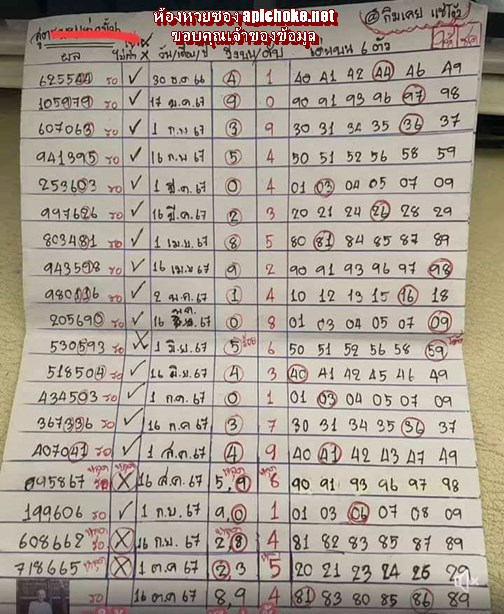 ห้องหวยซอง apichoke.net
ขอบคุณเจ้าของข้อมูล
@ กิมเคย แซ่โง้ว
ผล ไม่เข้า X วัน/เดือน/ปี วิ่งบน/ดับ เด่นบน 6 ตัว
625544 รอ ✓ 30 ธ.ค 66 4 1 40 41 42 44 46 49
105979 รอ ✓ 17 ม.ค.67 9 0 90 91 93 96 97 98
607063 รอ ✓ 1 ก.พ 67 3 9 30 31 34 35 36 37
941395 รอ ✓ 16 ก.พ 67 5 4 50 51 52 56 58 59
253603 รอ ✓ 1 มี.ค. 67 0 4 01 03 04 05 07 09
997626 รอ ✓ 16 มี.ค. 67 2 3 20 21 24 26 28 29
803481 รอ ✓ 1 เม.ย 67 8 5 80 81 84 85 87 89
943598 รอ ✓ 16 เม.ย 67 9 2 90 91 93 96 97 98
980116 รอ ✓ 2 พ.ค 67 1 4 10 12 13 15 16 18
205690 รอ ✓ 16 พ.ค 67 0 8 01 03 04 05 07 09
530593 รอ 1 มิ.ย. 67 5 6 50 51 52 56 58 59
518504 รอ ✓ 16 มิ.ย. 67 4 3 40 41 42 45 46 49
434503 รอ ✓ 1 ก.ค 67 0 1 01 03 04 05 07 09
367336 รอ ✓ 16 ก.ค 67 3 7 30 31 34 35 36 37
407041 รอ ✓ 1 ส.ค. 67 4 9 40 41 42 43 47 49
095867 รอ X 16 ส.ค. 67 5,9 8 90 91 93 96 97 98
199606 รอ ✓ 1 ก.ย. 67 9,0 1 01 03 06 07 08 09
608662 รอ X 16 ก.ย. 67 2,8 4 81 82 83 85 87 89
718665 รอ X 1 ต.ค 67 2,3 5 20 21 23 24 25 29
รอ 16 ต.ค 67 8,9 4 81 83 80 85 86 89